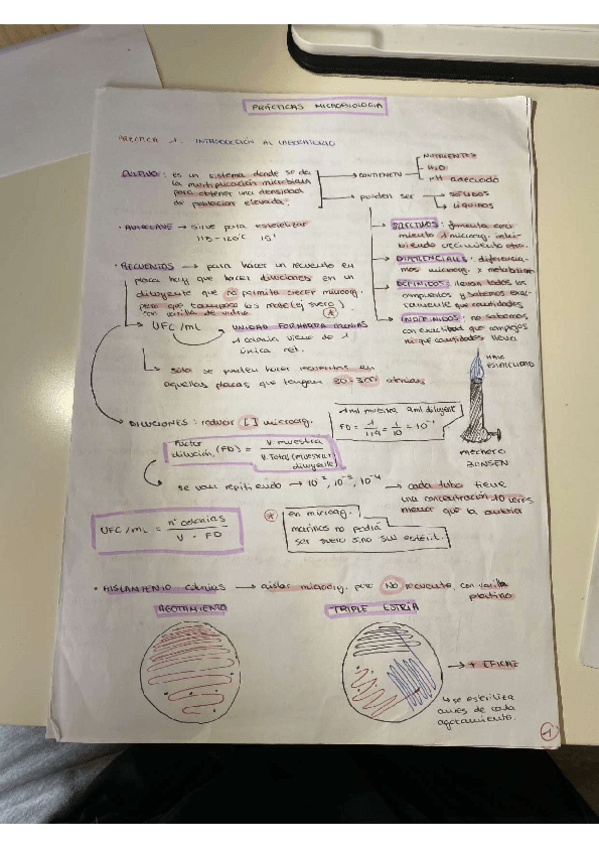 PRÁCTICAS MICROBIOLOGIA
PRÁCTICA 1. INTRODUCCIÓN AL LABORATORIO
CULTIVO: es un sistema donde se da
la multiplicación microbiana
para obtener una densidad
de población elevada.
CONTIENEN
NUTRIENTES
H2O
pH adecuado
pueden ser
SÓLIDOS
LÍQUIDOS
· AUTOCLAVE → sirve para esterilizar
115-120ºC 15'
SELECTIVOS: fomenta creci
miento 1 microorg. inhi-
biendo crecimiento otro.
DIFERENCIALES: diferencia-
mos microorg. x metabolismo
DEFINIDOS: llevan todos los
compuestos y sabemos exac-
tamente que cantidades
INDEFINIDOS: no sabemos
con exactitud que complejos
ni que cantidades lleva
· RECUENTOS → para hacer un recuento en
placa hay que hacer diluciones en un
diluyente que no permita crecer microorg.
pero que tampoco los mate (ej suero)
con varilla de vidrio
UFC/ML
UNIDAD FORMADORA COLONIAS
1 colonia viene de 1
única cel.
sólo se pueden hacer recuentos en
aquellas placas que tengan 30-300 colonias
HALO
ESTERILIDAD
MECHERO
BUNSEN
DILUCIONES: reducir [ ] microorg.
1ml muestra 9ml diluyent
FD = 1/1+9 = 1/10 = 10⁻¹
Factor
dilución (FD) = V. muestra / V. Total (muestra+
diluyente)
se van repitiendo → 10⁻², 10⁻³, 10⁻⁴ → cada tubo tiene
una concentración 10 veces
menor que la anterior
UFC/ML = nº colonias / V · FD
* en microorg.
marinos no podría
ser suero sino sal estéril.
· AISLAMIENTO colonias → aislar microorg. pero NO recuento, con varilla
platino
AGOTAMIENTO
TRIPLE ESTRIA
→ + EFICAZ
↳ se esteriliza
antes de cada
agotamiento.
1